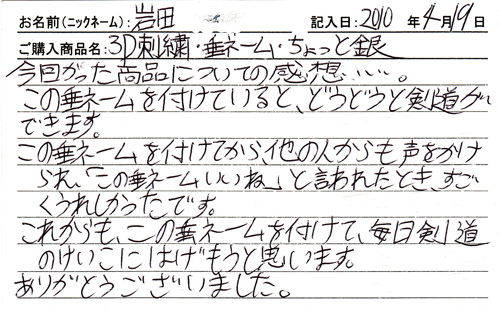 お名前(ニックネーム): 岩田 記入日: 2010 年 4月 19日
ご購入商品名: 3D刺繍・垂ネーム・ちょっと銀
今回かった商品についての感想……。
この垂ネームを付けていると、どうどうと剣道が
できます。
この垂ネームを付けてから、他の人からも声をかけ
られ、「この垂ネームいいね」と言われたとき、すご
くうれしかったです。
これからも、この垂ネームを付けて、毎日剣道
のけいこにはげもうと思います。
ありがとうございました。